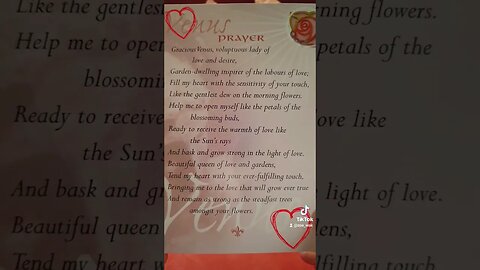 Like the gentlest dew on
Help me to open
blossoming
Ready to receive
the Sun's
And bask and grow
Beautiful queen
Tend my heart with your
Venus
PRAYER
Gracious Venus, voluptuous lady of
love and desire,
Garden-dwelling inspirer of the labours of love;
Fill my heart with the sensitivity of your touch,
Like the gentlest dew on the morning flowers.
Help me to open myself like the petals of the
blossoming buds,
Ready to receive the warmth of love like
the Sun's rays
And bask and grow strong in the light of love.
Beautiful queen of love and gardens,
Tend my heart with your ever-fulfilling touch,
Bringing me to the love that will grow ever true
And remain as strong as the steadfast trees
amongst your flowers.
TikTok
ning flowers.
petals of the
ve like
light of love.
s,
ing touch,